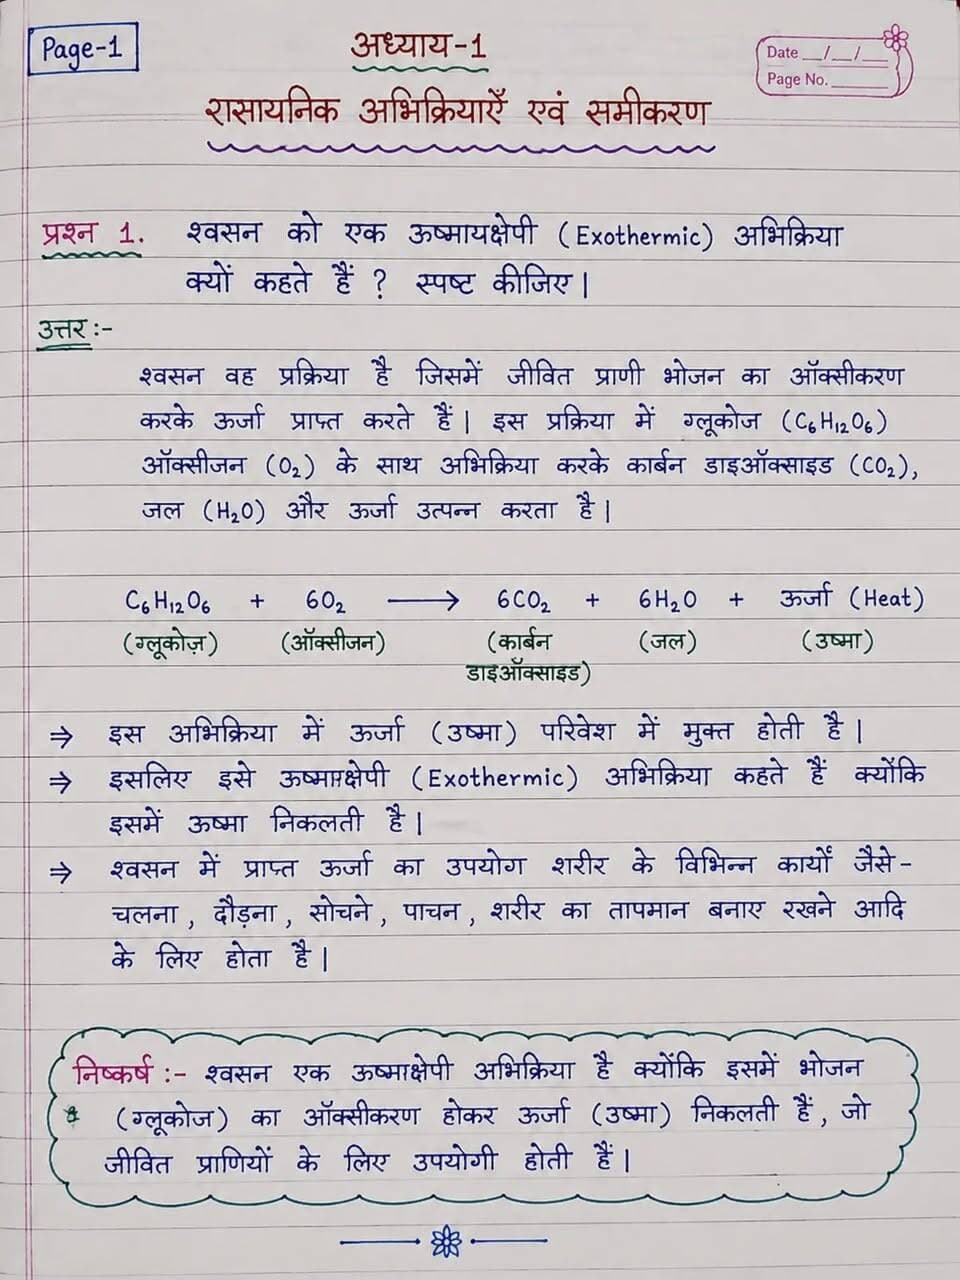 Page-1
अध्याय-1
Date __/__/__
Page No. ______
रासायनिक अभिक्रियाएँ एवं समीकरण
प्रश्न 1. श्वसन को एक ऊष्मायक्षेपी (Exothermic) अभिक्रिया
क्यों कहते हैं ? स्पष्ट कीजिए |
उत्तर :-
श्वसन वह प्रक्रिया है जिसमें जीवित प्राणी भोजन का ऑक्सीकरण
करके ऊर्जा प्राप्त करते हैं | इस प्रक्रिया में ग्लूकोज (C₆H₁₂O₆)
ऑक्सीजन (O₂) के साथ अभिक्रिया करके कार्बन डाइऑक्साइड (CO₂),
जल (H₂O) और ऊर्जा उत्पन्न करता है |
C₆H₁₂O₆ + 6O₂ ⟶ 6CO₂ + 6H₂O + ऊर्जा (Heat)
(ग्लूकोज़) (ऑक्सीजन) (कार्बन (जल) (उष्मा)
डाइऑक्साइड)
⇒ इस अभिक्रिया में ऊर्जा (उष्मा) परिवेश में मुक्त होती है |
⇒ इसलिए इसे (Exothermic) अभिक्रिया कहते हैं क्योंकि
इसमें ऊष्मा निकलती है |
⇒ श्वसन में प्राप्त ऊर्जा का उपयोग शरीर के विभिन्न कार्यों जैसे -
चलना , दौड़ना , सोचने , पाचन , शरीर का तापमान बनाए रखने आदि
के लिए होता है |
निष्कर्ष :- श्वसन एक अभिक्रिया है क्योंकि इसमें भोजन
(ग्लूकोज) का ऑक्सीकरण होकर ऊर्जा (उष्मा) निकलती हैं , जो
जीवित प्राणियों के लिए उपयोगी होती हैं |